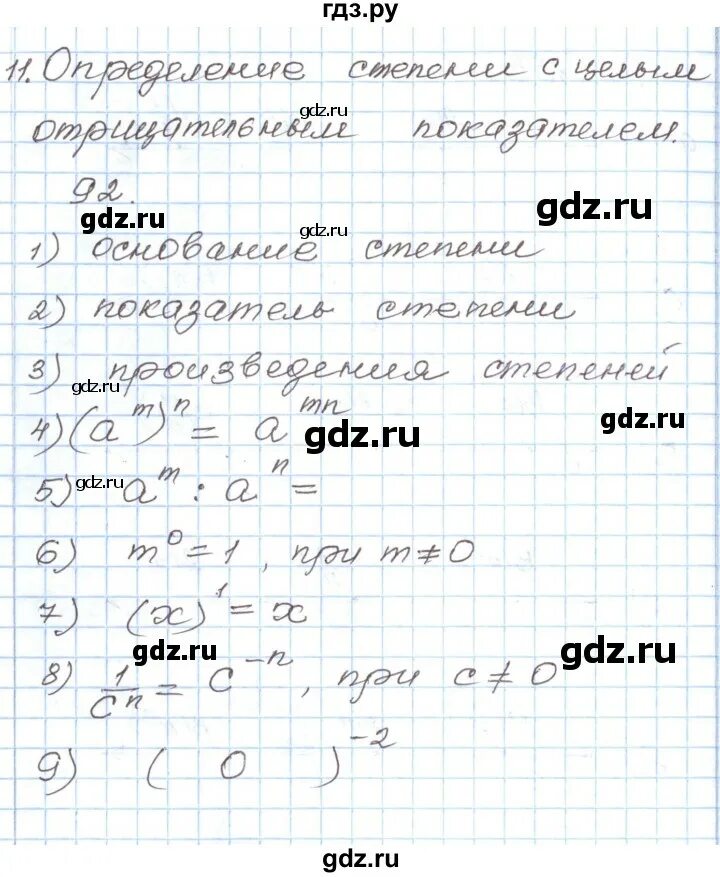 гдз.ру
11. Определение степени с целым
gdz.ru
отрицательным показателем.
92.
gdz.ru gdz.ru gdz.ru
1) основание степени
2) показатель степени
3) произведения степеней
gdz.ru gdz.ru
4) (a^m)^n = a^mn
gdz.ru
5) a^m : a^n =
gdz.ru
6) m^0 = 1, при m ≠ 0
7) (x)^1 = x
gdz.ru gdz.ru
8) 1/c^n = c^-n, при c ≠ 0
9) ( 0 )^-2
gdz.ru